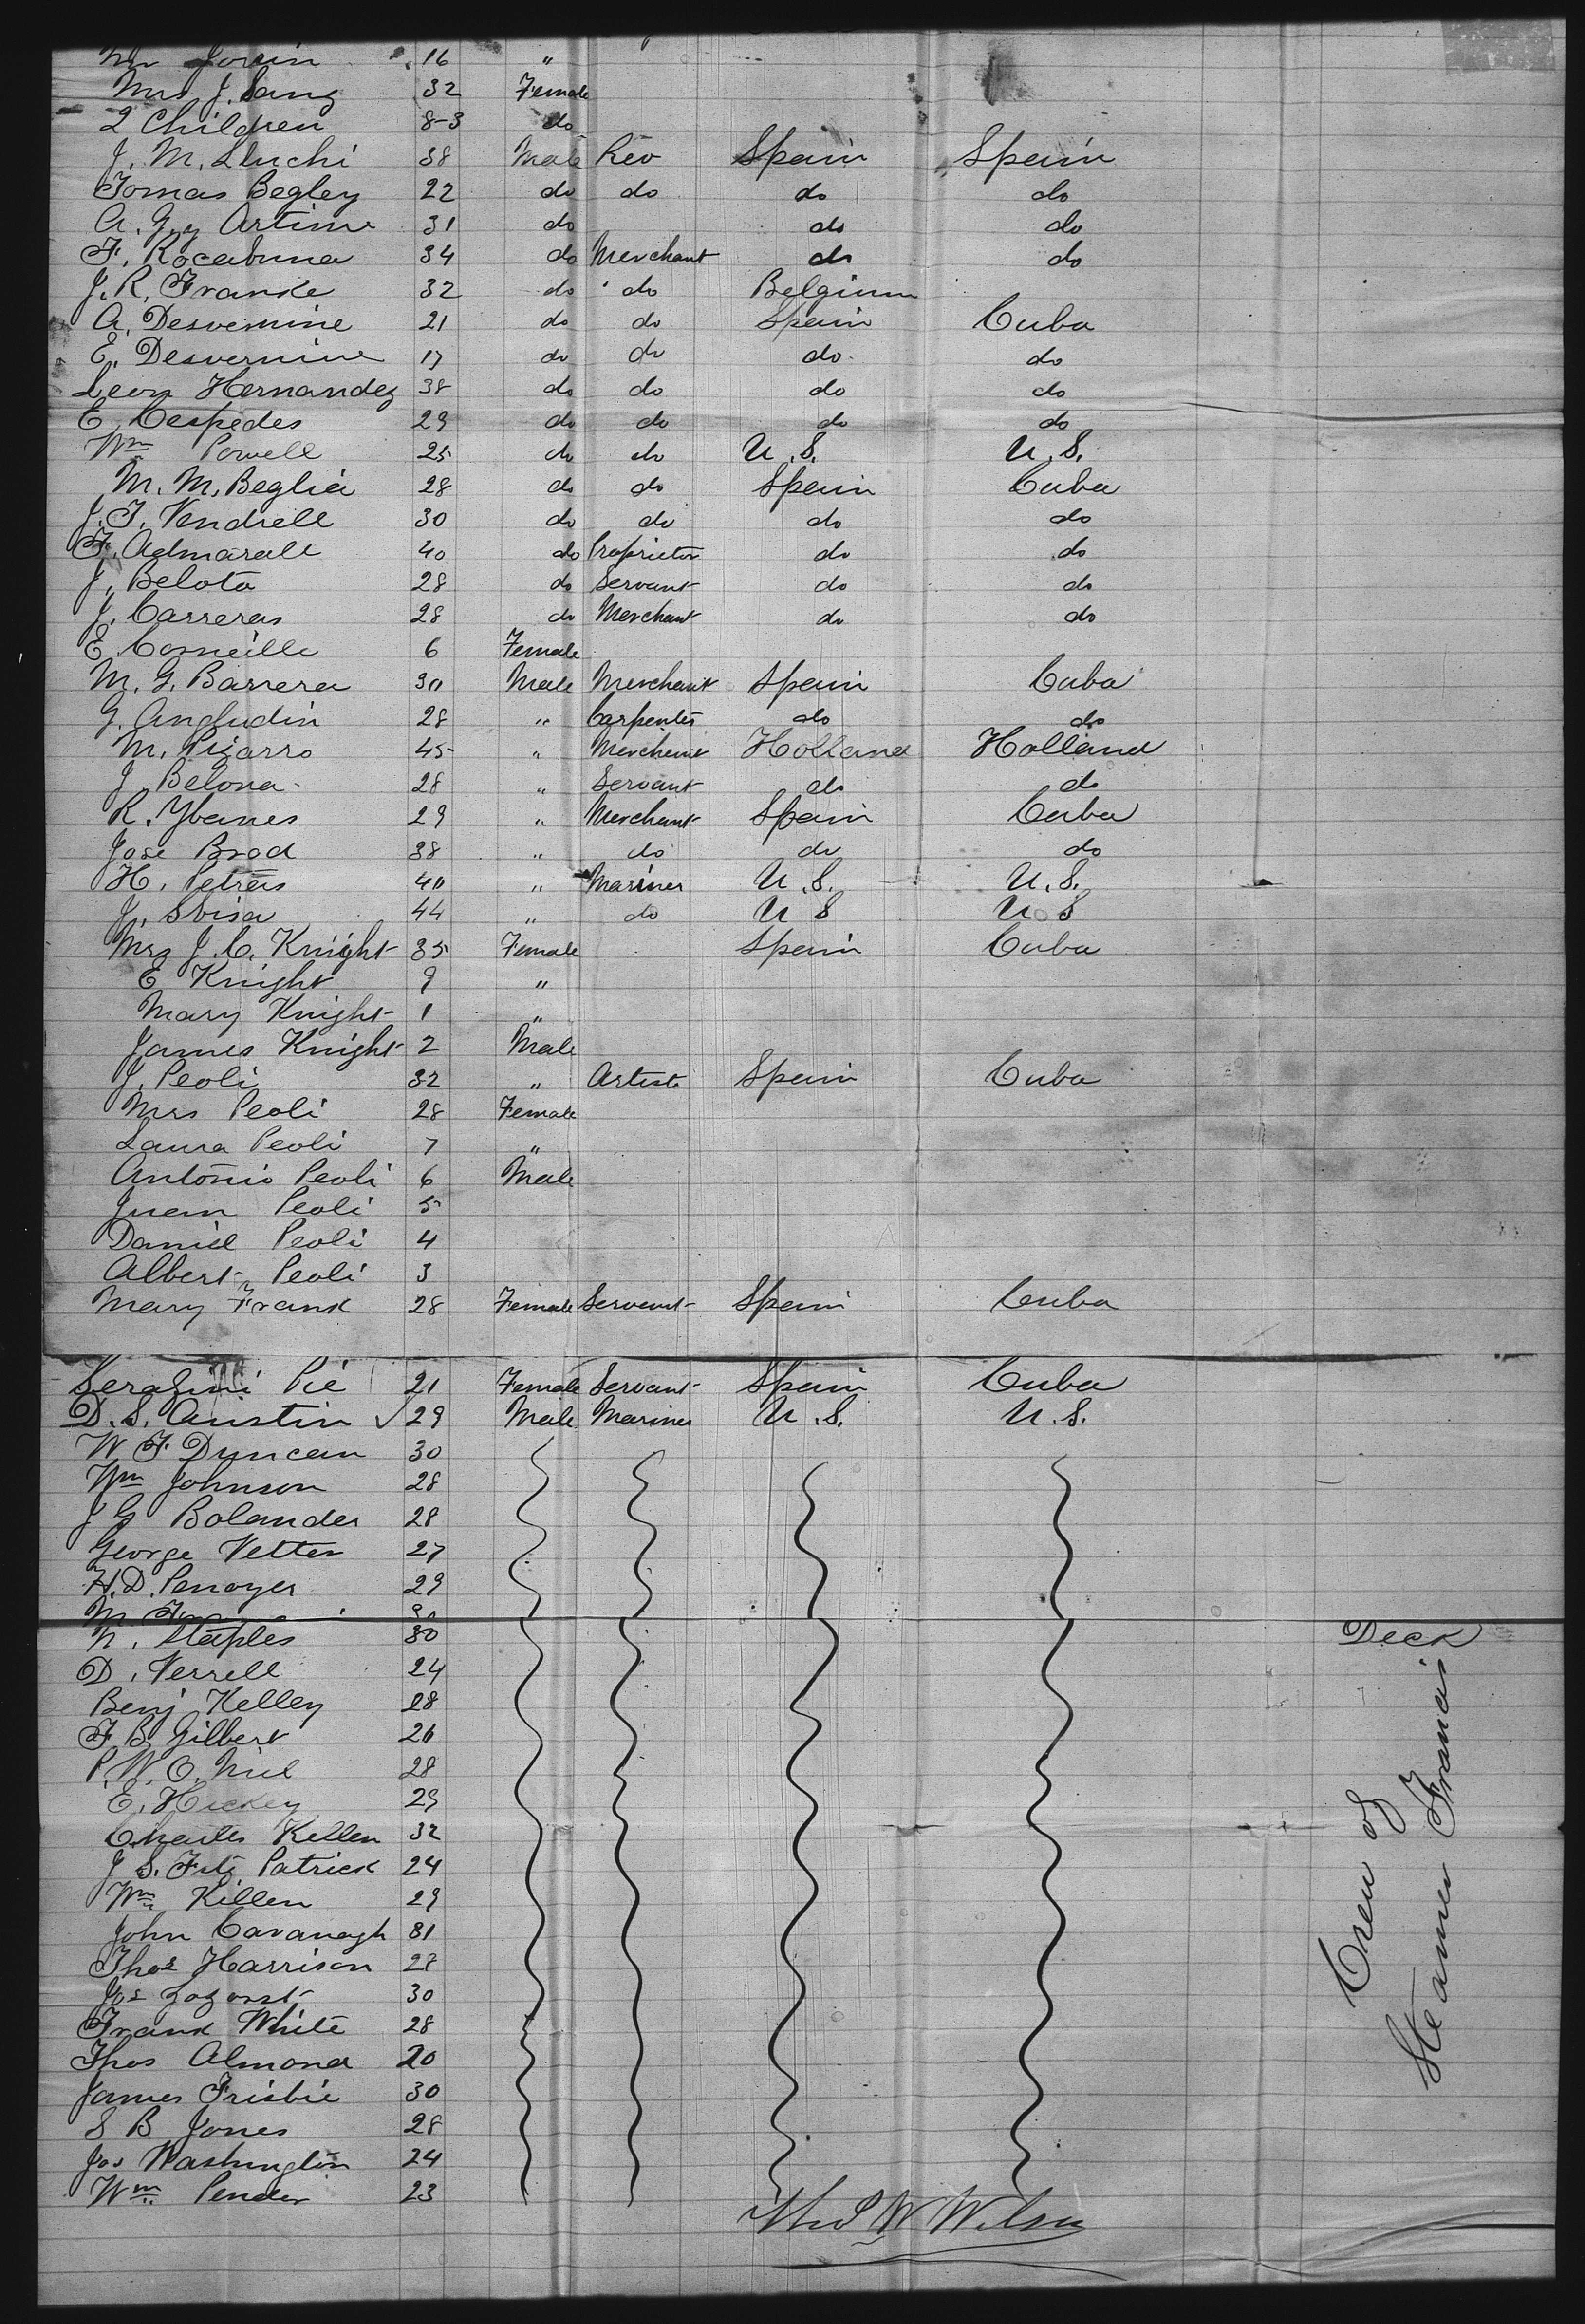 Jorrin 16 "
Mrs J. Sanz 32 Female
2 Children 8-3 do
J. M. Lluchi 38 Male Rev Spain Spain
Tomas Begley 22 do do do do
A. G. y Artime 31 do do do
F. Rocabruna 34 do Merchant do do
J. R. Franke 32 do do Belgium
A. Desvernine 21 do do Spain Cuba
E. Desvernine 17 do do do do
Leon Hernandez 38 do do do do
E Cespedes 29 do do do do
Wm Powell 25 do do U.S. U.S.
M. M. Beglia 28 do do Spain Cuba
J. T. Vendrell 30 do do do do
F. Aelmarall 40 do Proprietor do do
J. Belota 28 do Servant do do
J. Carreras 28 do Merchant do do
E. Corneille 6 Female
M. G. Barrera 30 Male Merchant Spain Cuba
G. Angludin 28 " Carpenter do do
M. Pizarro 45 " Merchant Holland Holland
J Belona 28 " Servant do do
R. Ybanes 29 " Merchant Spain Cuba
Jose Brod 38 " do do do
H. Peters 40 " Mariner U.S. U.S.
J. Sbisa 44 " do U S U S
Mrs J. C. Knight 35 Female Spain Cuba
E Knight 9 "
Mary Knight 1 "
James Knight 2 Male
J. Peoli 32 " Artist Spain Cuba
Mrs Peoli 28 Female
Laura Peoli 7 "
Antonio Peoli 6 Male
Juan Peoli 5
Daniel Peoli 4
Albert Peoli 3
Mary Frank 28 Female Servant Spain Cuba
Serafini Pie 21 Female Servant Spain Cuba
D. S. Austin √ 29 Male Mariner U.S. U.S.
W F Duncan 30
Wm Johnson 28
J G Bolander 28
George Vetter 27
H. D. Penoyer 29
N. Staples 30 Deck
D. Verrell 24
Benj Kelley 28
F B Gilbert 26
P. W. O. Niel 28
E. Hickey 29
Charles Kellen 32
J S. Fitz Patrick 24
Wm Killen 29
John Cavanagh 31
Thos Harrison 27
Jos 30
Frank White 28
Thos Almond 20
James Frisbie 30
S B Jones 28
Jos Washington 24
Wm Pender 23
Crew of
Steamer Francis
Thos W Wilson